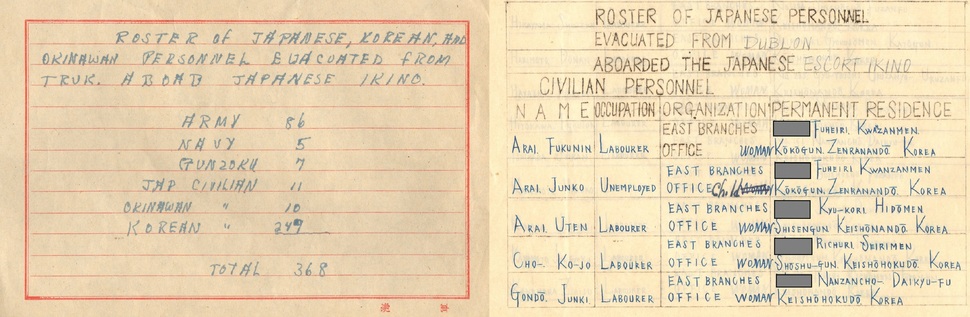 ROSTER OF JAPANESE, KOREAN, AND
OKINAWAN PERSONNEL EVACUATED FROM
TRUK. ABOAD JAPANESE IKINO.
ARMY 86
NAVY 5
GUNZOKU 7
JAP CIVILIAN 11
OKINAWAN " 10
KOREAN " 249
TOTAL 368
ROSTER OF JAPANESE PERSONNEL
EVACUATED FROM DUBLON
ABOARDED THE JAPANESE ESCORT IKINO
CIVILIAN PERSONNEL
NAME OCCUPATION ORGANIZATION PERMANENT RESIDENCE
ARAI, FUKUNIN LABOURER EAST BRANCHES OFFICE WOMAN FUHEIRI, KWAZANMEN, KŌKŌGUN, ZENRANANDŌ, KOREA
ARAI, JUNKO UNEMPLOYED EAST BRANCHES OFFICE Child FUHEIRI KWANZANMEN KŌKŌGUN, ZENRANANDŌ, KOREA
ARAI, UTEN LABOURER EAST BRANCHES OFFICE WOMAN KYU-KORI HIDŌMEN SHISENGUN KEISHŌNANDŌ KOREA
CHO-, KO-JO LABOURER EAST BRANCHES OFFICE WOMAN RICHURI SEIRIMEN SHŌSHU-GUN, KEISHŌHOKUDŌ, KOREA
GONDŌ, JUNKI, LABOURER EAST BRANCHES OFFICE WOMAN NANZANCHO- DAIKYU-FU KEISHŌHOKUDŌ KOREA